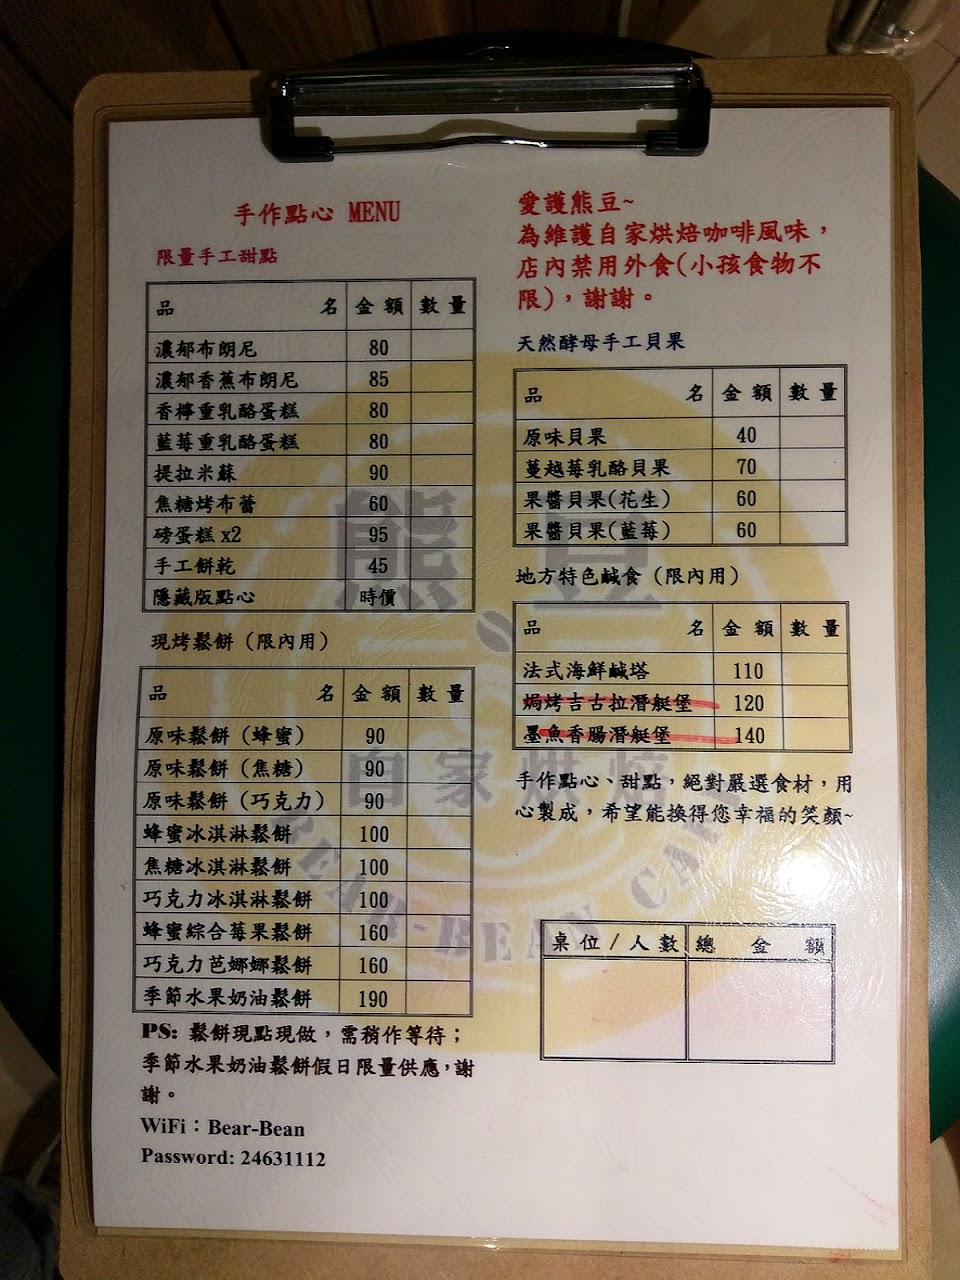 手作點心 MENU
限量手工甜點
品 名 金 額 數 量
濃郁布朗尼 80
濃郁香蕉布朗尼 85
香檸重乳酪蛋糕 80
藍莓重乳酪蛋糕 80
提拉米蘇 90
焦糖烤布蕾 60
磅蛋糕 x2 95
手工餅乾 45
隱藏版點心 時價
現烤鬆餅 (限內用)
品 名 金 額 數 量
原味鬆餅 (蜂蜜) 90
原味鬆餅 (焦糖) 90
原味鬆餅 (巧克力) 90
蜂蜜冰淇淋鬆餅 100
焦糖冰淇淋鬆餅 100
巧克力冰淇淋鬆餅 100
蜂蜜綜合莓果鬆餅 160
巧克力芭娜娜鬆餅 160
季節水果奶油鬆餅 190
PS: 鬆餅現點現做，需稍作等待；
季節水果奶油鬆餅假日限量供應，謝
謝。
WiFi：Bear-Bean
Password: 24631112
愛護熊豆~
為維護自家烘焙咖啡風味，
店內禁用外食(小孩食物不
限)，謝謝。
天然酵母手工貝果
品 名 金 額 數 量
原味貝果 40
蔓越莓乳酪貝果 70
果醬貝果(花生) 60
果醬貝果(藍莓) 60
地方特色鹹食 (限內用)
品 名 金 額 數 量
法式海鮮鹹塔 110
焗烤吉古拉潛艇堡 120
墨魚香腸潛艇堡 140
手作點心、甜點，絕對嚴選食材，用
心製成，希望能換得您幸福的笑顏~
桌位/人數 總 金 額
熊豆
自家烘焙
BEAR-BEAN CAFE